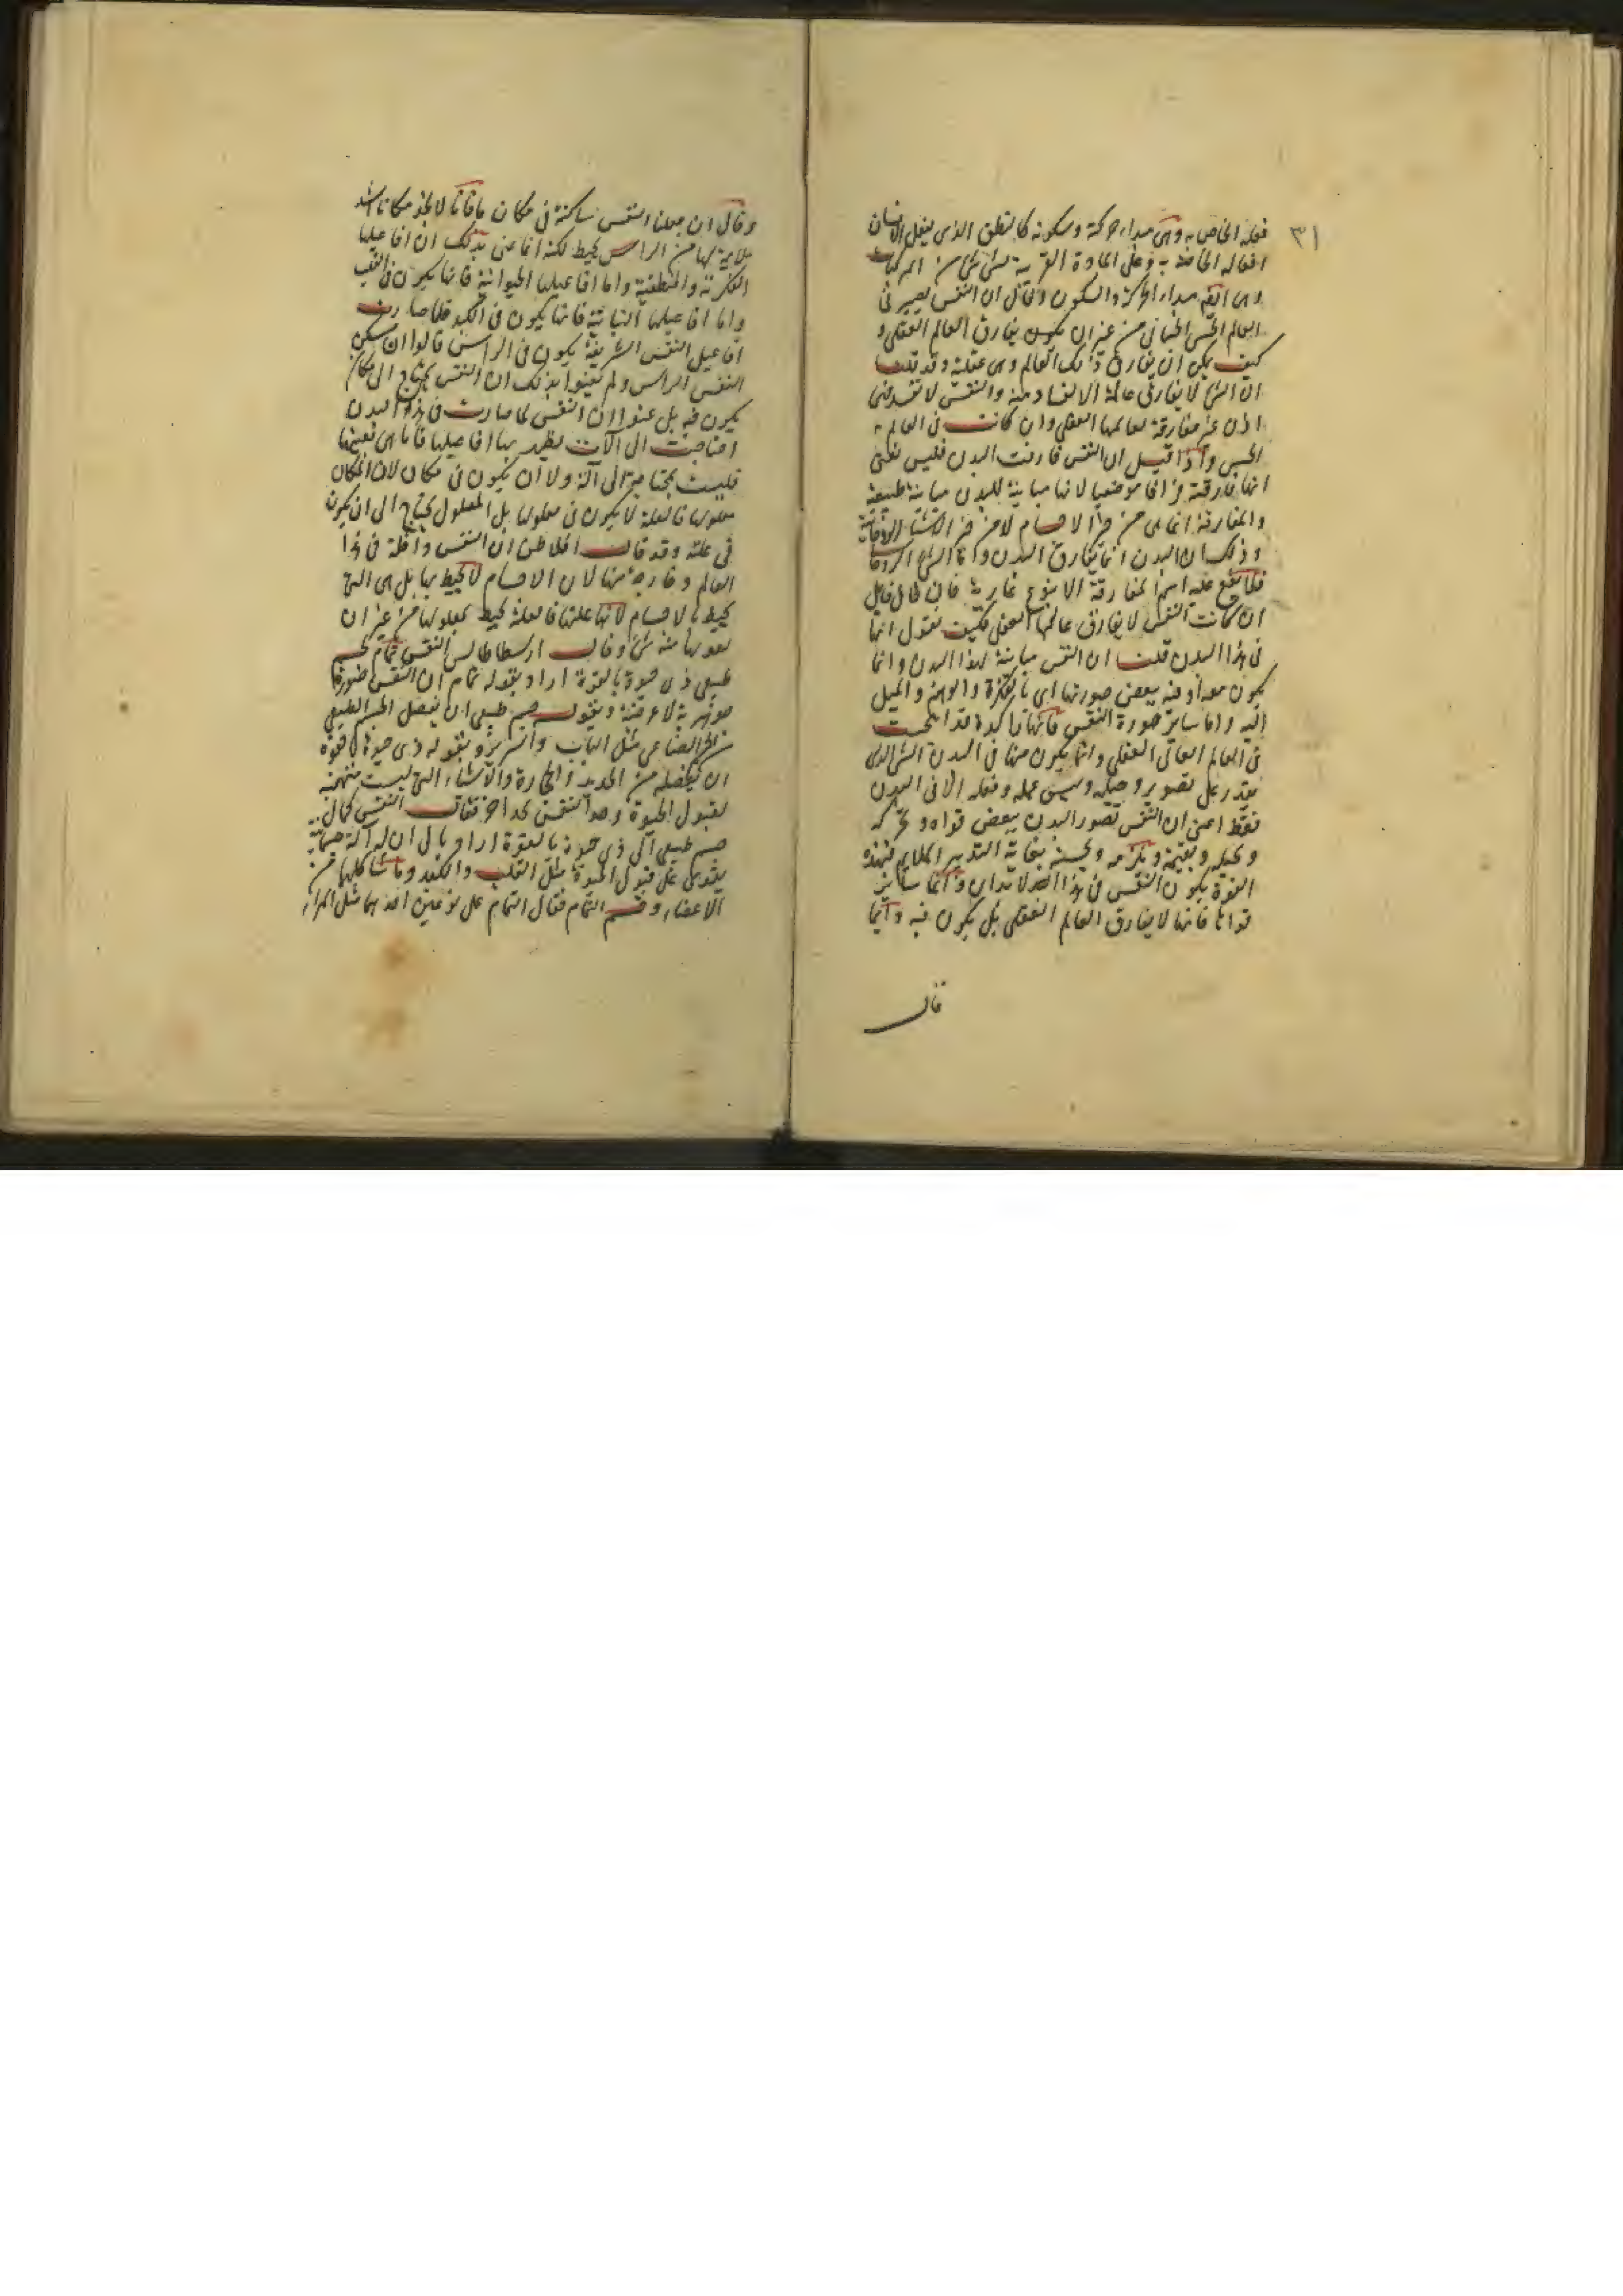 ٣١
فعله الخاص به وهى مبداء حركة وسكونه كالنطق الذى يفعل الانسان
افعاله الخاصة به وعلى المادة القريبة لشئ شئ من المركبات
وهى ايضا مبداء الحركة والسكون وقال ان النفس تصير فى
العالم الحسى الجسمانى من غير ان تكون يفارق العالم العقلى و
كيف يمكن ان يفارق ذلك العالم وهى عقلية وقد قلت
ان الشئ لا يفارق عالمه الا بفساد منه والنفس لا تفسد فهى
اذن غير مفارقة لعالمها العقلى وان كانت فى العالم
الحسى واذا قيل ان النفس فارقت البدن فليس نعنى
انها فارقته فراقا موضعيا لانها مباينة للبدن مباينة طبيعية
والمفارقة انما هى من حيز الاجسام لا من حيز الاشياء الروحانية
وذلك ان البدن انما يفارق البدن واما الشئ الروحانى
فلا يقع عليه اسم المفارقة الا بنوع غاريه فان قال قائل
ان كانت النفس لا يفارق عالمها العقلى فكيف نقول انها
فى هذا البدن قلت ان النفس مباينة لهذا البدن وانما
يكون معه او فيه ببعض صورتها اى بالفكرة والوهم والميل
اليه واما سائر صورة النفس فانها راكدة قد اتحدت
فى العالم العالى العقلى وانما يكون منها فى البدن الشئ الذى
يقدر على تصويره وحيله وليس عمله وفعله الا فى البدن
فقط اعنى ان النفس تصور البدن ببعض قواه وتحركه
وتحيله وتقيمه وتلزمه وتحسنه بغاية التدبير الملايم فبهذه
القوة يكون النفس فى هذا البدن واما سائر
قواها فانها لا يفارق العالم العقلى بل يكون فيه دائما
قال
وقال ان جعلنا النفس ساكنة فى مكان ما فانا لا نجد مكانا اشد
ملايمة لها من الراس يحيط لكنه انما عنى بذلك ان افاعيلها
الفكرية والمنطقية واما افاعيلها الحيوانية فانها يكون فى القلب
واما افاعيلها النباتية فانها يكون فى الكبد فلما صارت
افاعيل النفس الشريفة يكون فى الراس قالوا ان مسكن
النفس الراس ولم يعنوا بذلك ان النفس يحتاج الى مكان
يكون فيه بل عنوا ان النفس لما صارت فى هذا البدن
احتاجت الى الآت يظهر بها افاعيلها فاما هى نفسها
فليست بمحتاجة الى آلة ولا ان يكون فى مكان لان المكان
معلولها فالعلة لا يكون فى معلولها بل المعلول يحتاج الى ان يكون
فى علته وقد قال افلاطن ان النفس داخلة فى هذا
العالم وخارجة منها لان الاجسام لا تحيط بها بل هى التى
تحيط بالاجسام لانها علتها فالعلة تحيط بمعلولها من غير ان
يفوتها منه شئ وقال ارسطاطاليس النفس تمام لجسم
طبيعى ذى حيوة بالقوة اراد بقوله تمام ان النفس صورة
جوهرية لا عرضية وبقوله جسم طبيعى ان يفصل الجسم الطبيعى
من الصناعى مثل الباب والسرير وبقوله ذى حيوة بالقوة
ان يفصله من الحديد والحجارة والاشياء التى ليست متهيئة
لقبول الحيوة وحد النفس بحد اخر فقال النفس كمال
جسم طبيعى آلى ذى حيوة بالقوة اراد بآلى ان له آلة جسمانية
يقوى على قبول الحيوة مثل القلب والكبد وما شاكلها من
الاعضاء وقسم التمام فقال التمام على نوعين احدهما مثل المرار